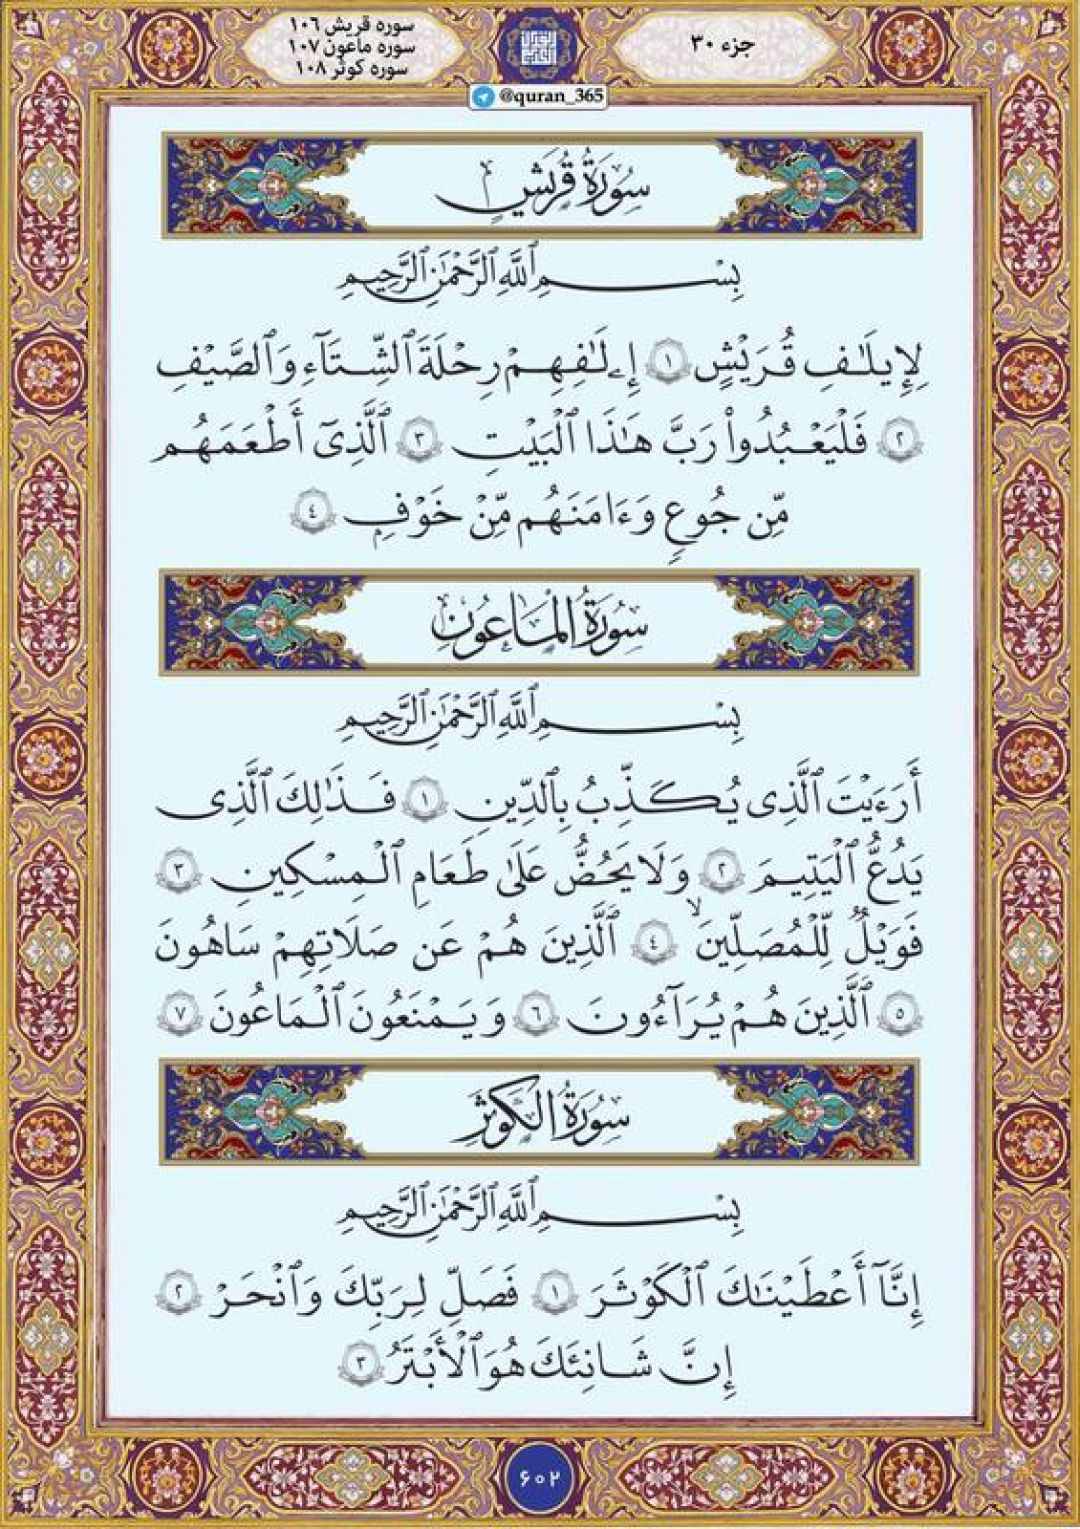 جزء ۳۰
سوره قریش ۱۰۶
سوره ماعون ۱۰۷
سوره کوثر ۱۰۸
@quran_365
سُورَةُ قُرَيْشٍ
بِسْمِ ٱللَّهِ ٱلرَّحْمَٰنِ ٱلرَّحِيمِ
لِإِيلَٰفِ قُرَيْشٍ ١ إِۦلَٰفِهِمْ رِحْلَةَ ٱلشِّتَآءِ وَٱلصَّيْفِ
٢ فَلْيَعْبُدُوا۟ رَبَّ هَٰذَا ٱلْبَيْتِ ٣ ٱلَّذِىٓ أَطْعَمَهُم
مِّن جُوعٍ وَءَامَنَهُم مِّنْ خَوْفٍ ٤
سُورَةُ الْمَاعُونِ
بِسْمِ ٱللَّهِ ٱلرَّحْمَٰنِ ٱلرَّحِيمِ
أَرَءَيْتَ ٱلَّذِى يُكَذِّبُ بِٱلدِّينِ ١ فَذَٰلِكَ ٱلَّذِى
يَدُعُّ ٱلْيَتِيمَ ٢ وَلَا يَحُضُّ عَلَىٰ طَعَامِ ٱلْمِسْكِينِ ٣
فَوَيْلٌ لِّلْمُصَلِّينَ ۙ ٤ ٱلَّذِينَ هُمْ عَن صَلَاتِهِمْ سَاهُونَ
٥ ٱلَّذِينَ هُمْ يُرَآءُونَ ٦ وَيَمْنَعُونَ ٱلْمَاعُونَ ٧
سُورَةُ الْكَوْثَرِ
بِسْمِ ٱللَّهِ ٱلرَّحْمَٰنِ ٱلرَّحِيمِ
إِنَّآ أَعْطَيْنَٰكَ ٱلْكَوْثَرَ ١ فَصَلِّ لِرَبِّكَ وَٱنْحَرْ ٢
إِنَّ شَانِئَكَ هُوَ ٱلْأَبْتَرُ ٣
۶۰۲